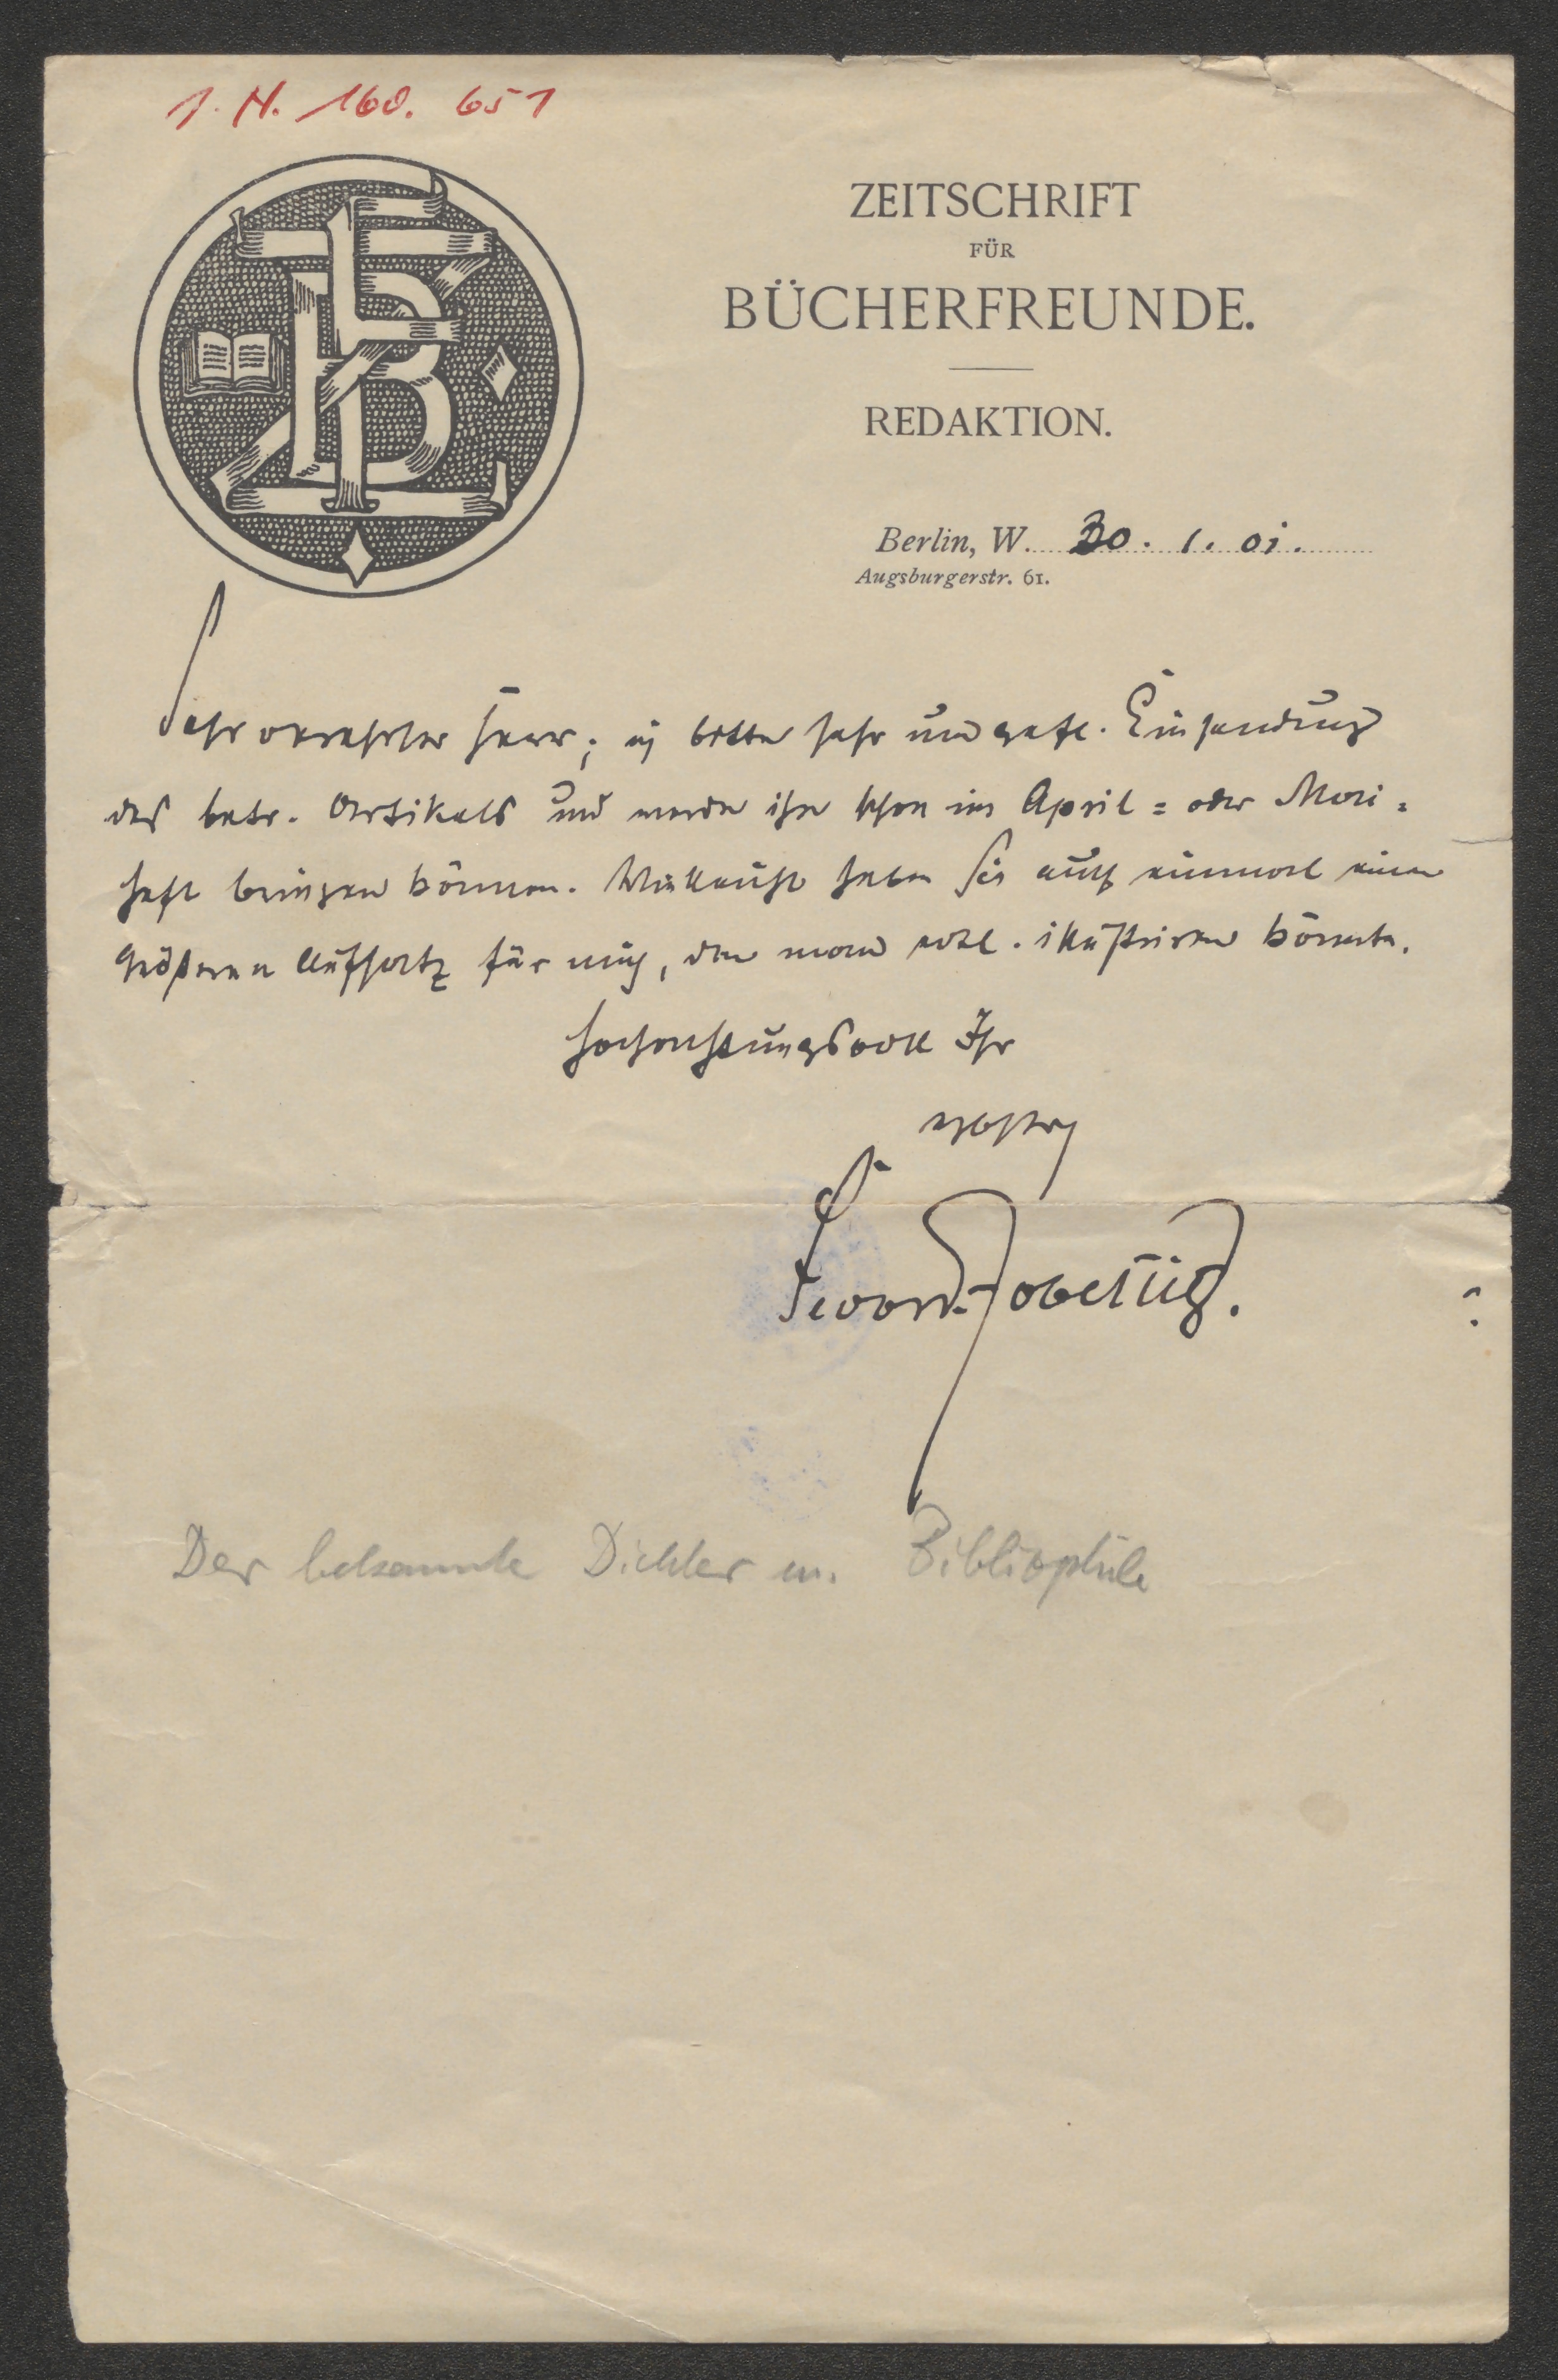 I. N. 160. 651
ZEITSCHRIFT
FÜR
BÜCHERFREUNDE.
REDAKTION.
Berlin, W. 30. 1. 01.
Augsburgerstr. 61.
Sehr verehrter Herr; ich bitte sehr um gefl. Einsendung
des betr. Artikels und werde ihn schon im April= oder Mai=
heft bringen können. Vielleicht haben Sie auch einmal einen
größeren Aufsatz für mich, den man evtl. illustriren könnte.
Hochachtungsvoll Ihr
ergebster
Fedor v. Zobeltitz.
Der bekannte Dichter u. Bibliophile